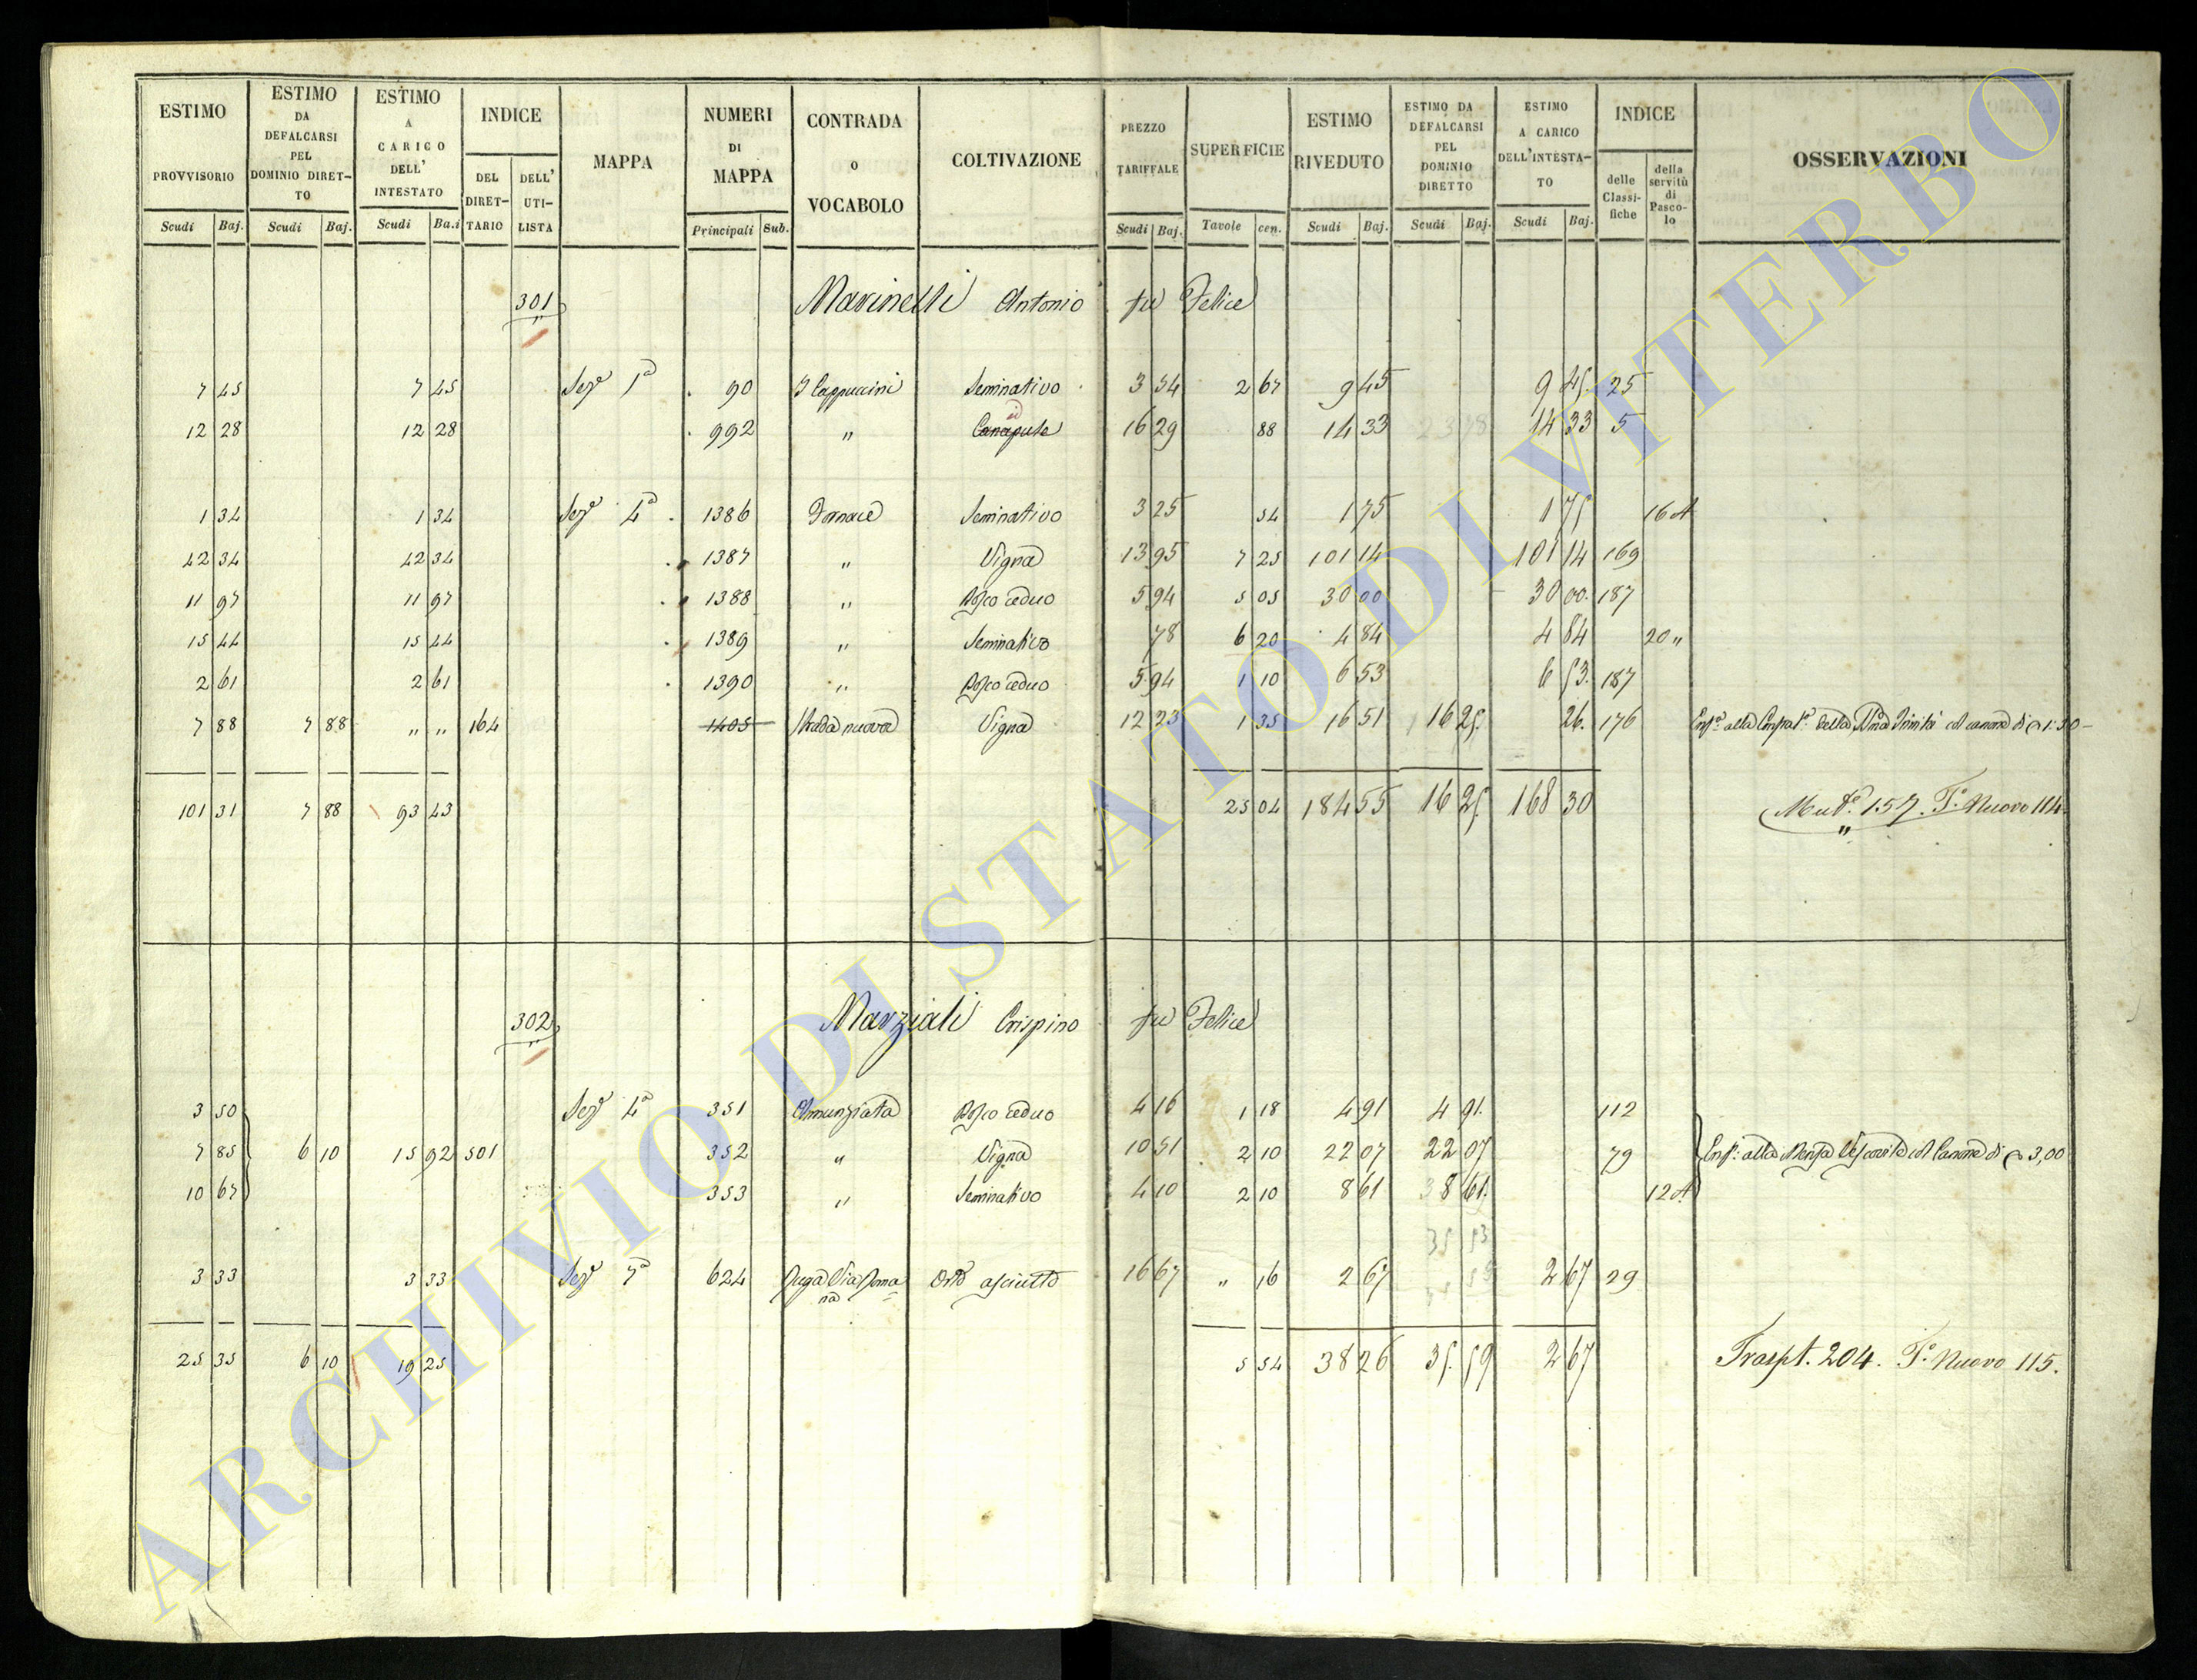 ESTIMO PROVVISORIO | ESTIMO DA DEFALCARSI PEL DOMINIO DIRET-TO | ESTIMO A CARICO DELL' INTESTATO | INDICE | MAPPA | NUMERI DI MAPPA | CONTRADA O VOCABOLO | COLTIVAZIONE | PREZZO TARIFFALE | SUPERFICIE | ESTIMO RIVEDUTO | ESTIMO DA DEFALCARSI PEL DOMINIO DIRETTO | ESTIMO A CARICO DELL'INTESTA-TO | INDICE | OSSERVAZIONI
DEL DIRET-TARIO | DELL' UTI-LISTA | delle Classi-fiche | della servitù di Pasco-lo
Scudi Baj. | Scudi Baj. | Scudi Ba.i | Principali Sub. | Scudi Baj. | Tavole cen. | Scudi Baj. | Scudi Baj. | Scudi Baj.
301 Marinelli Antonio fu Felice
7 45 | 7 45 | Sezᵉ 1ª | 90 | I Cappuccini | Seminativo | 3 54 | 2 67 | 9 45 | 9 45 | 25
12 28 | 12 28 | 992 | " | 16 29 | 88 | 14 33 | 14 33 | 5
1 34 | 1 34 | Sezᵉ 4ª | 1386 | Fornace | Seminativo | 3 25 | 54 | 1 75 | 1 75 | 16 A
42 34 | 42 34 | 1387 | " | Vigna | 13 95 | 7 25 | 101 14 | 101 14 | 169
11 97 | 11 97 | 1388 | " | Bosco ceduo | 5 94 | 5 05 | 30 00 | 30 00 | 187
15 44 | 15 44 | 1389 | " | Seminativo | 78 | 6 20 | 4 84 | 4 84 | 20 "
2 61 | 2 61 | 1390 | " | Bosco ceduo | 5 94 | 1 10 | 6 53 | 6 53 | 187
7 88 | 7 88 | " " | 164 | 1405 | Strada nuova | Vigna | 12 23 | 1 35 | 16 51 | 16 25 | 26 | 176 | Enfᵃ alla Compᵃ della SSma Trinità col canone di 1:30
101 31 | 7 88 | 93 43 | 25 04 | 184 55 | 16 25 | 168 30 | Mutᵉ 157. Fº Nuovo 114
302 Marziali Crispino fu Felice
3 50 | Sezᵉ 4ª | 351 | Annunziata | Bosco ceduo | 4 16 | 1 18 | 4 91 | 4 91 | 112
7 85 | 6 10 | 15 92 | 501 | 352 | " | Vigna | 10 51 | 2 10 | 22 07 | 22 07 | 79 | Enfᵃ: alla Mensa Vescovile col Canone di 3,00
10 67 | 353 | " | Seminativo | 4 10 | 2 10 | 8 61 | 8 61 | 12 A
3 33 | 3 33 | Sezᵉ 7ª | 624 | Via Romana | Orto asciutto | 16 67 | " 16 | 2 67 | 2 67 | 29
25 35 | 6 10 | 19 25 | 5 54 | 38 26 | 35 59 | 2 67 | Traspt. 204. Fº Nuovo 115.
ARCHIVIO DI STATO DI VITERBO